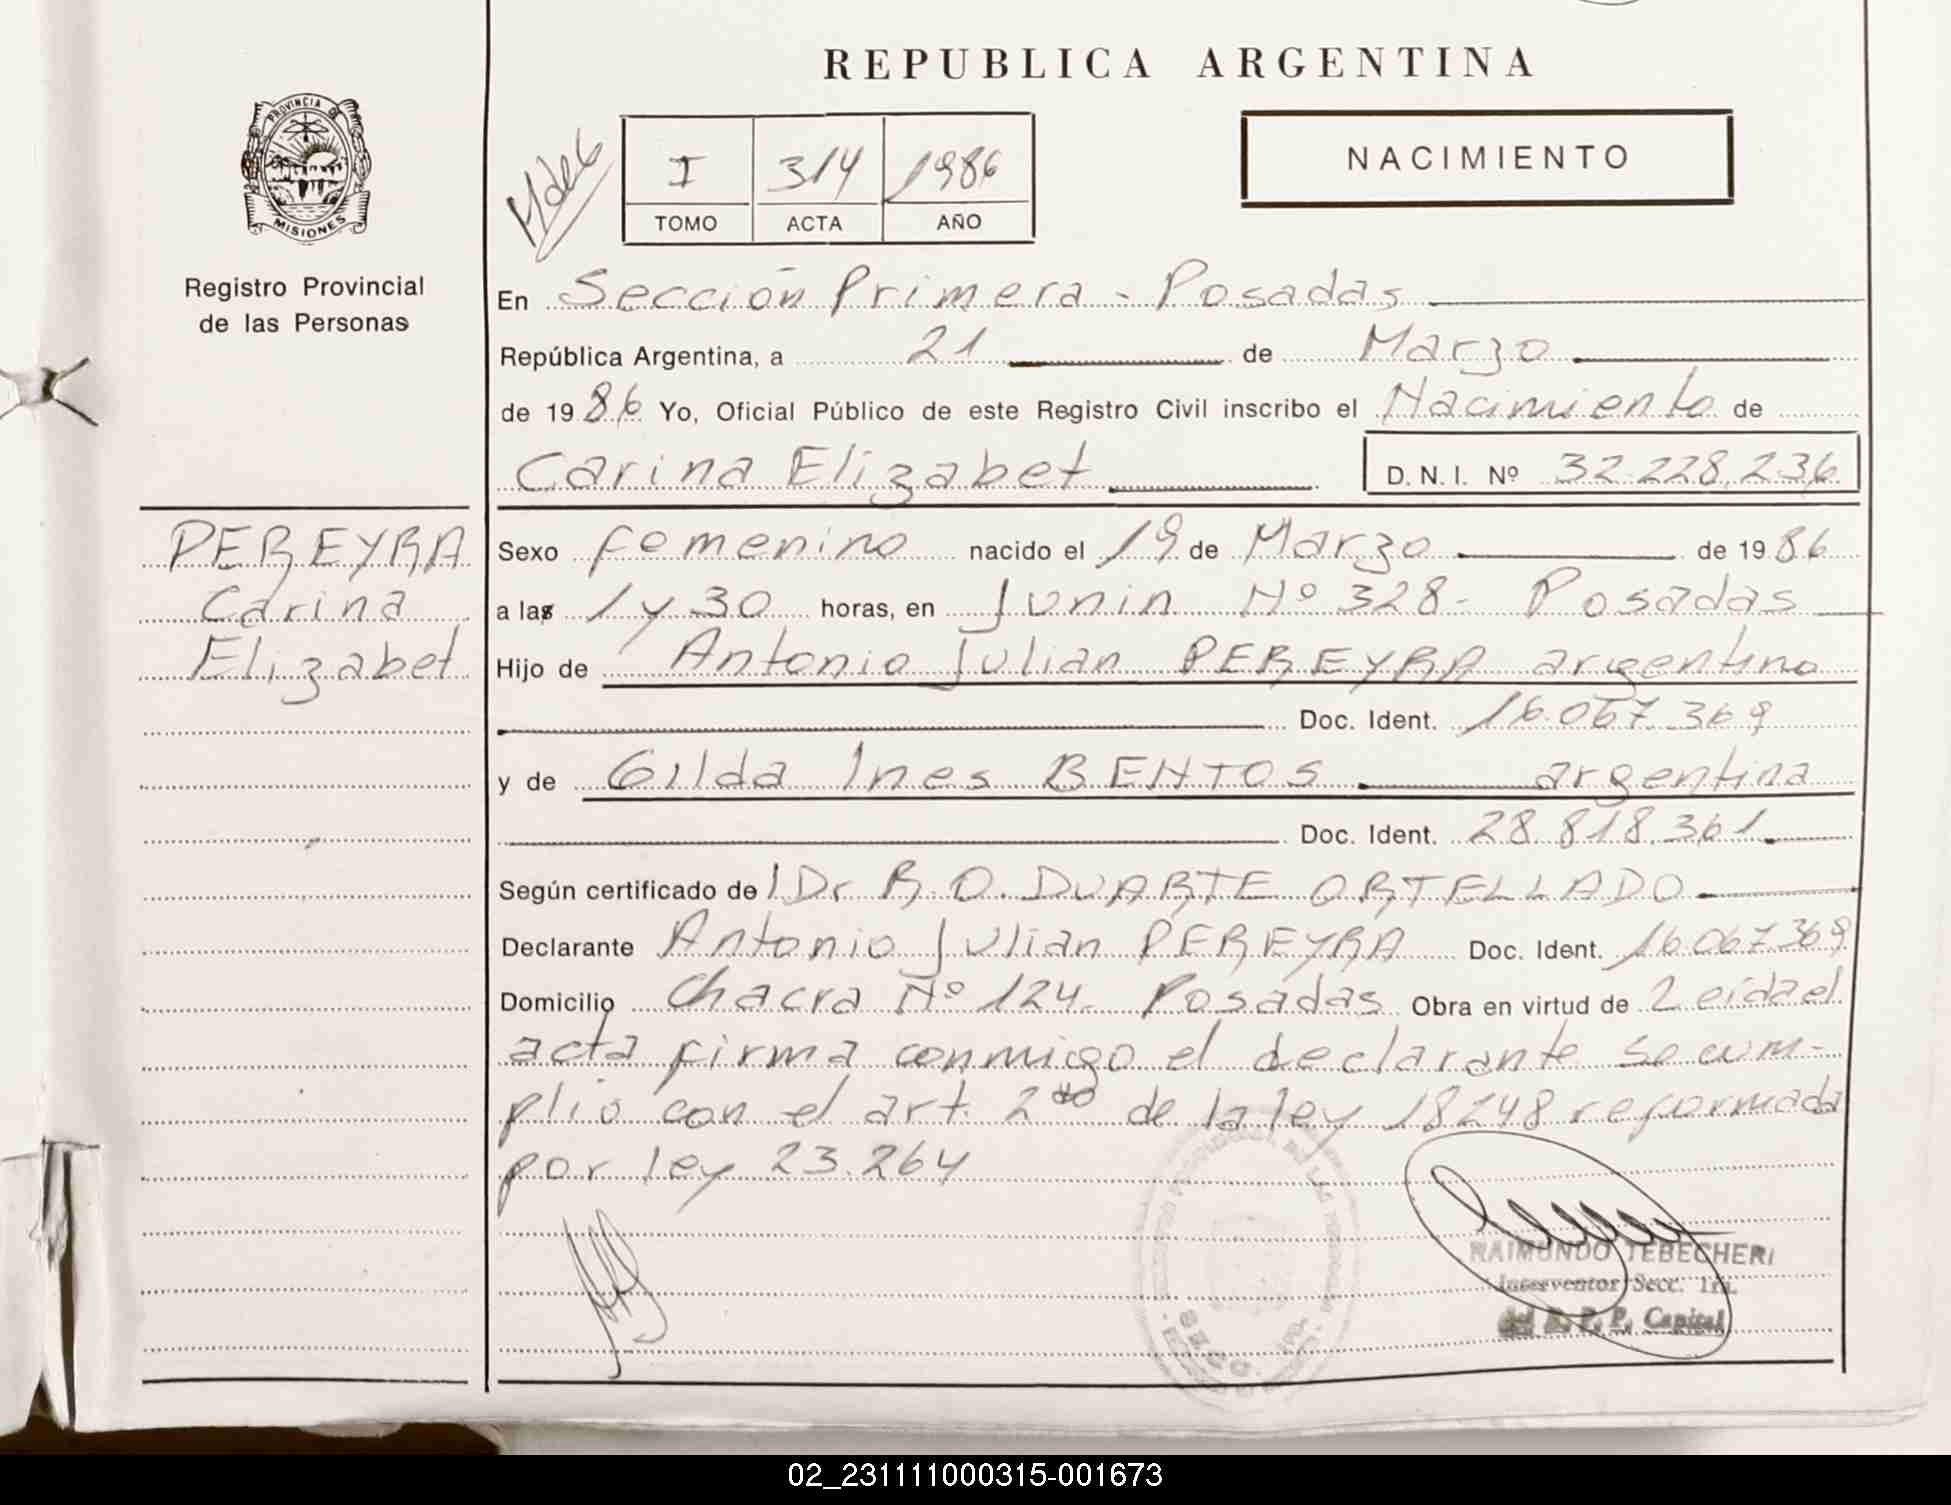 REPUBLICA ARGENTINA
PROVINCIA DE
MISIONES
Registro Provincial
de las Personas
I 314 1986
TOMO ACTA AÑO
NACIMIENTO
En Sección Primera - Posadas
República Argentina, a 21 de Marzo
de 1986 Yo, Oficial Público de este Registro Civil inscribo el Nacimiento de
Carina Elizabet D. N. I. Nº 32.228.236
PEREYRA
Carina
Elizabet
Sexo femenino nacido el 19 de Marzo de 1986
a las 1 y 30 horas, en Junin Nº 328 - Posadas
Hijo de Antonio Julian PEREYRA argentino
Doc. Ident. 16.067.369
y de Gilda Ines BENTOS argentina
Doc. Ident. 28.818.361
Según certificado del Dr R. O. DUARTE ORTELLADO
Declarante Antonio Julian PEREYRA Doc. Ident. 16.067.369
Domicilio Chacra Nº 124 - Posadas Obra en virtud de Leída el
acta firma conmigo el declarante se cum-
plió con el art. 2do de la ley 18248 reformada
por ley 23.264
RAIMUNDO TEBECHERI
Interventor Secc. 1ra.
del R. P. P. Capital
02_231111000315-001673